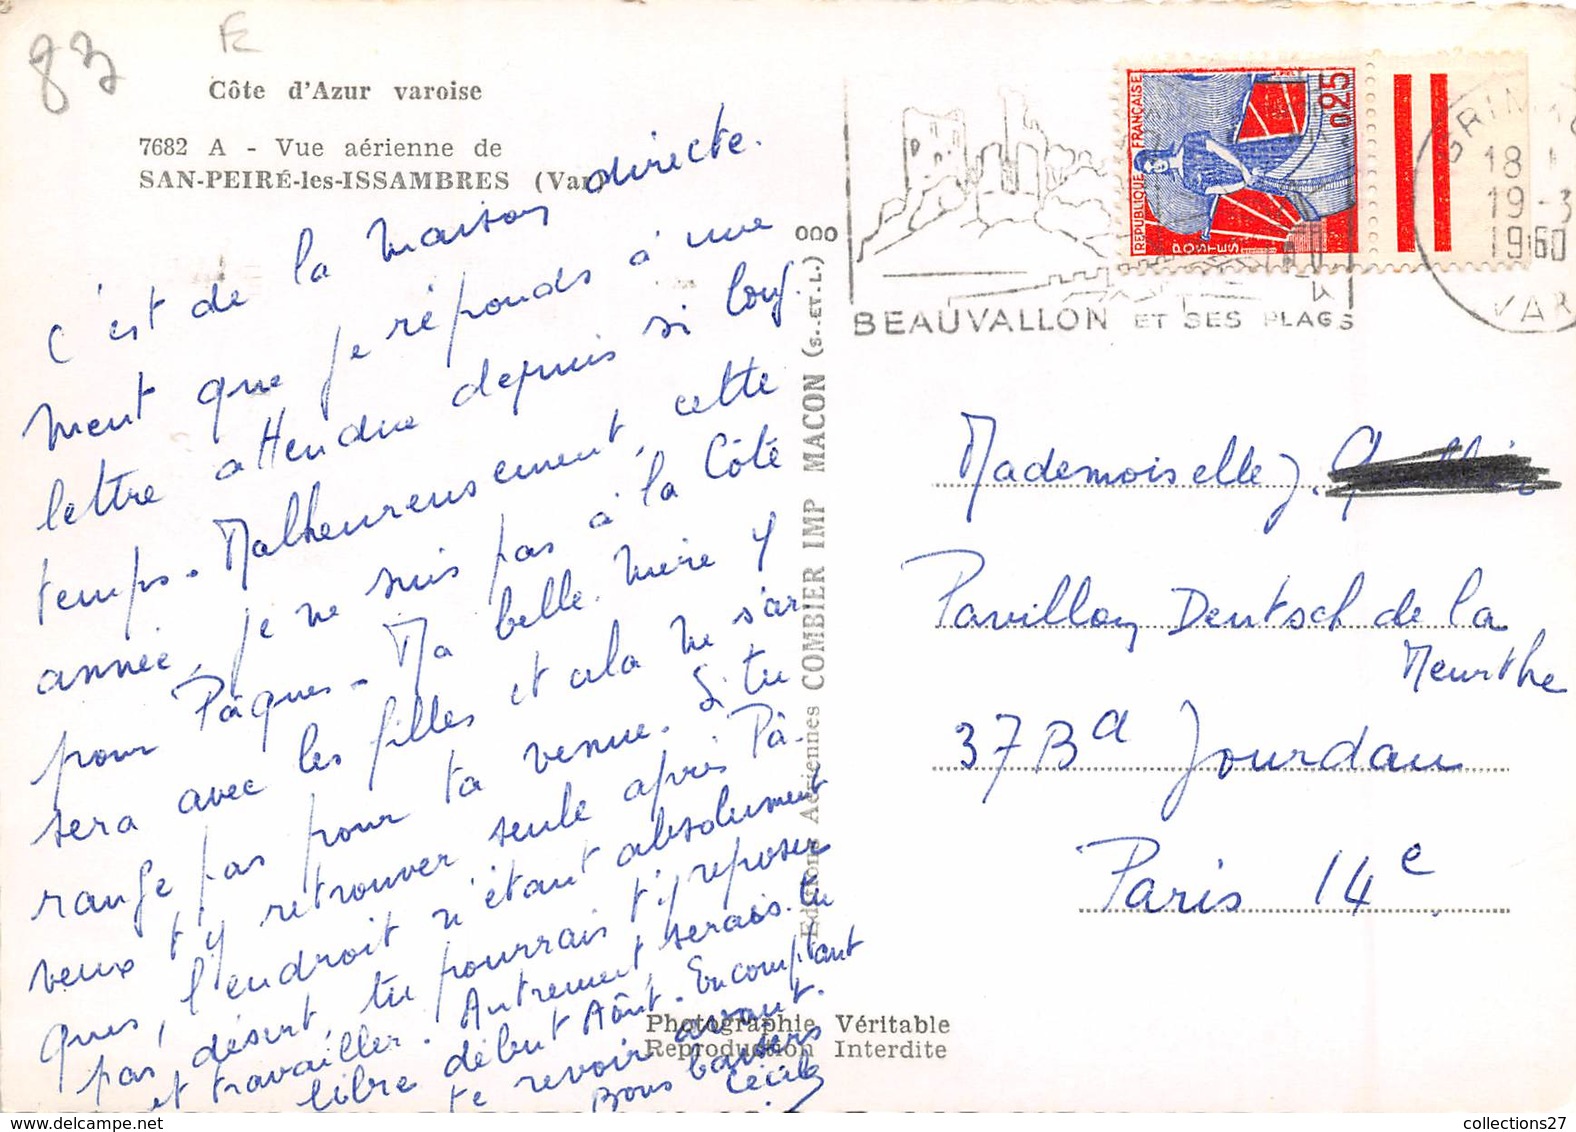 83
Côte d'Azur varoise
7682 A - Vue aérienne de
SAN-PEIRÉ-les-ISSAMBRES (Var)
C'est de la maison directe.
ment que je réponds à une
lettre attendue depuis si long.
temps - Malheureusement, cette
année, je ne suis pas à la Côte
pour Pâques - Ma belle-mère y
sera avec les filles et cela ne s'ar
range pas pour ta venue. Si tu
veux t'y retrouver seule après Pâ-
ques, l'endroit n'étant absolument
pas désert, tu pourrais t'y reposer
et travailler. Autrement, serais-tu
libre début Août - En comptant
te revoir avant.
Bons baisers
Cécile
Editions Aériennes COMBIER IMP MACON (S.-ET-L.)
000
Photographie Véritable
Reproduction Interdite
BEAUVALLON ET SES PLAGES
REPUBLIQUE FRANÇAISE
POSTES
0,25
GRIMAUD
18 H
19-3
1960
VAR
Mademoiselle J.
Pavillon Deutsch de la
Meurthe
37 Bd Jourdan
Paris 14e
collections27